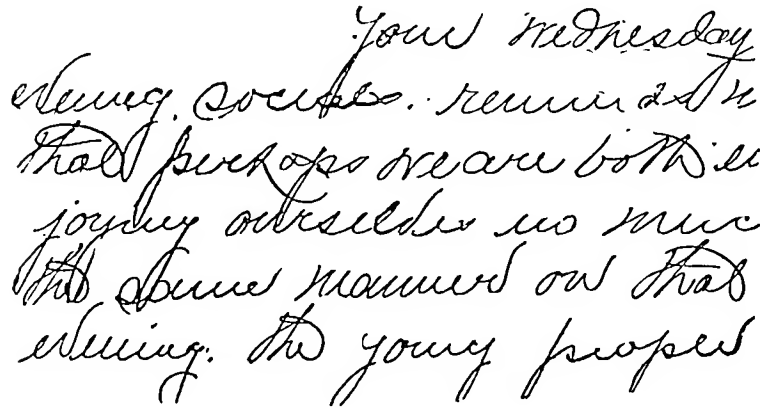 Your wednesday
evening. socials. reminds m
that perhaps we are both en
joying ourselves in muc
the same manner on that
evening. the young people